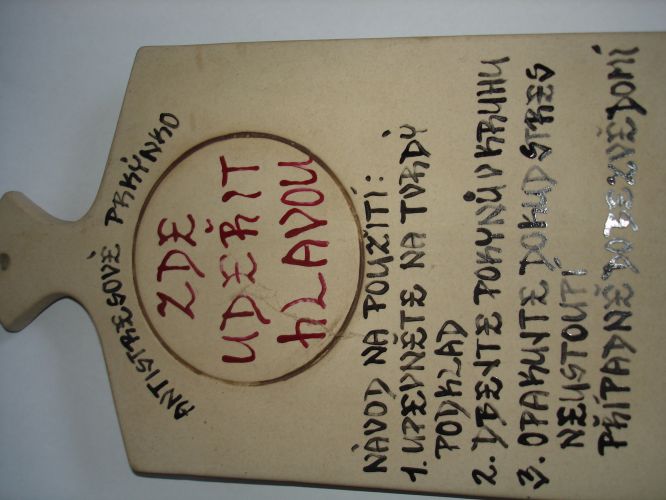 ANTISTRESOVÉ PRKÝNKO
ZDE
UDEŘIT
HLAVOU
NÁVOD NA POUŽITÍ:
1. UPEVNĚTE NA TVRDÝ
PODKLAD
2. DBEJTE POKYNŮ V KRUHU
3. OPAKUJTE DOKUD STRES
NEUSTOUPÍ
PŘÍPADNĚ DO BEZVĚDOMÍ